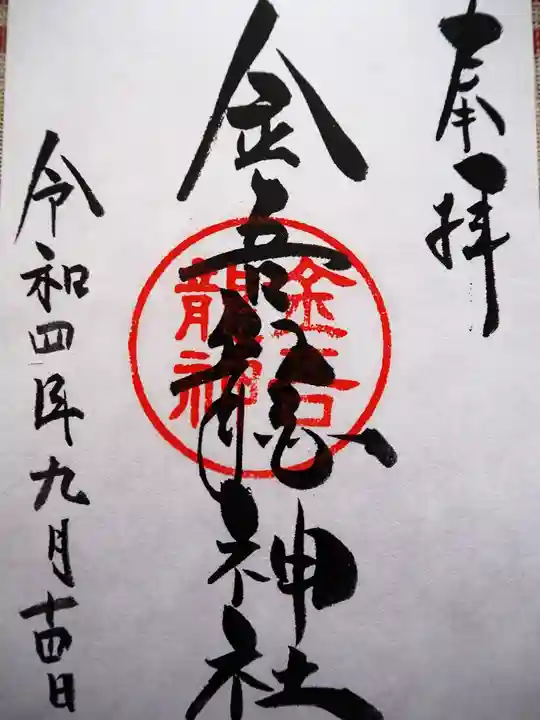 奉拝
金吾龍神社
金吾龍神
令和四年九月十四日